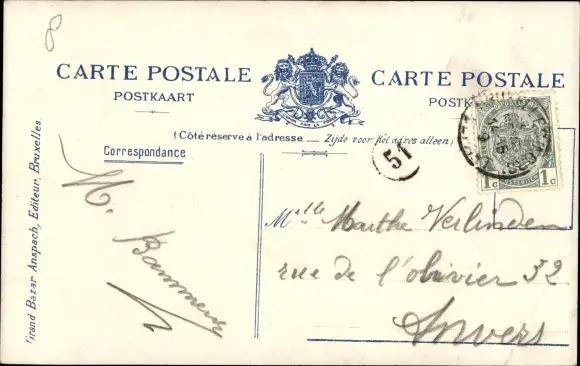 8
CARTE POSTALE
POSTKAART
CARTE POSTALE
(Côté réservé à l'adresse — Zijde voor het adres alleen)
51
1c 1c
Correspondance
M.
Grand Bazar Anspach, Editeur, Bruxelles
Mlle Marthe Verlinden
rue de l'olivier 32
Anvers